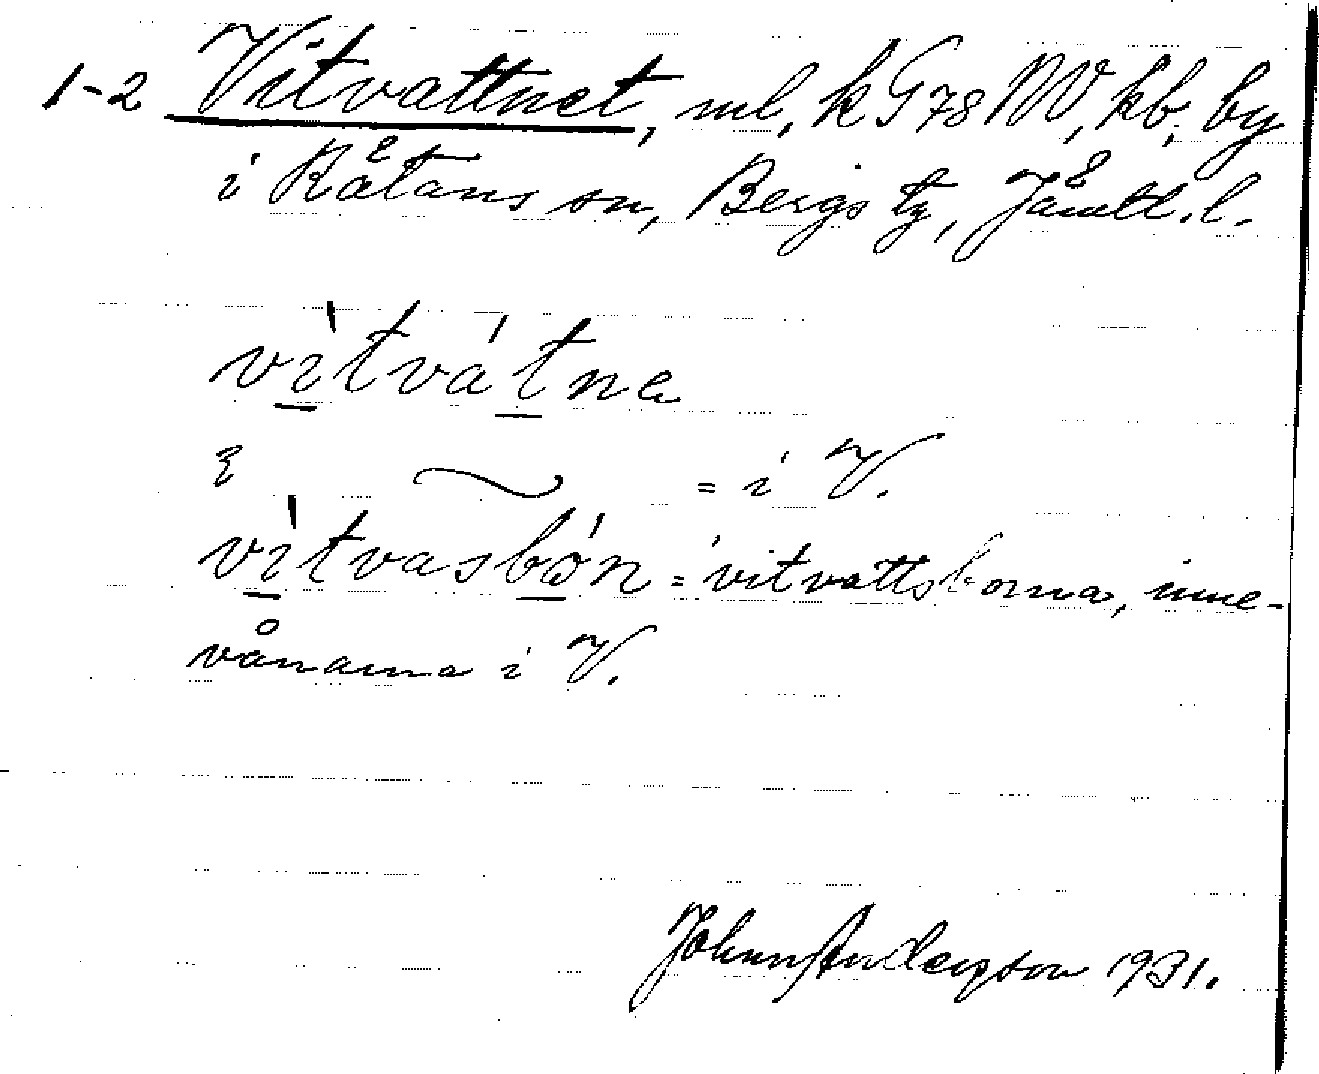 1-2 Vitvattnet, ml, k G 78 NV, kb, by
i Rätans sn, Bergs tg, Jämtl. l.
vìtvátne
i ~ = i V.
vìtvasbón = 'vitvattsborna, inne-
vånarna i V.
John Anderson 1931.